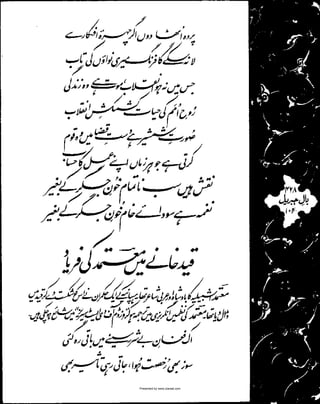 پردہ اٹھا دوں اگر چہرۂ افکار سے
لا نہ سکے گا فرنگ میری نواؤں کی تاب
جس میں نہ ہو انقلاب، موت ہے وہ زندگی
روحِ امم کی حیات کشمکشِ انقلاب
صورتِ شمشیر ہے دستِ قضا میں وہ قوم
کرتی ہے جو ہر زماں اپنے عمل کا حساب
نقش ہیں سب ناتمام خونِ جگر کے بغیر
نغمہ ہے سودائے خام خونِ جگر کے بغیر
۳۲۸
بالِ جبریل
۱۰۴
قید خانے میں معتمد کی فریاد
معتمد اشبیلیہ کا بادشاہ اور عربی شاعر تھا۔ ہسپانیہ کے ایک حکمران نے اس کو شکست دے کر قید میں
ڈال دیا تھا۔ معتمد کی نظمیں انگریزی میں ترجمہ ہو کر وزڈم آف دی ایسٹ سیریز میں شائع ہو چکی ہیں
اک فغانِ بے شرر سینے میں باقی رہ گئی
سوز بھی رخصت ہوا، جاتی رہی تاثیر بھی